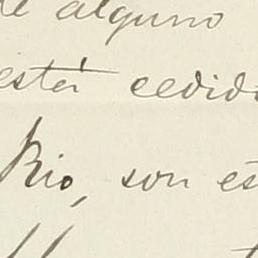 de alguno
está cedid
Rio, son es